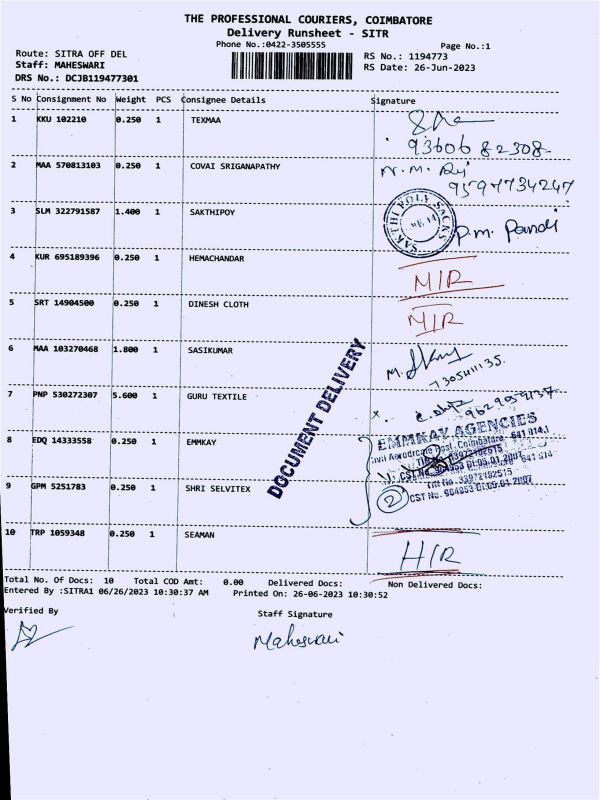 THE PROFESSIONAL COURIERS, COIMBATORE
Delivery Runsheet - SITR
Phone No.:0422-3505555
Page No.:1
Route: SITRA OFF DEL
RS No.: 1194773
Staff: MAHESWARI
RS Date: 26-Jun-2023
DRS No.: DCJB119477301
S No Consignment No Weight PCS Consignee Details Signature
1 KKU 102210 0.250 1 TEXMAA
93606 82308
2 MAA 570813103 0.250 1 COVAI SRIGANAPATHY
3 SLM 322791587 1.400 1 SAKTHIPOY
SAKTHI POLY SACKS
P.M. Pandi
4 KUR 695189396 0.250 1 HEMACHANDAR
N/R
5 SRT 14904500 0.250 1 DINESH CLOTH
N/R
6 MAA 103270468 1.800 1 SASIKUMAR
7 PNP 530272307 5.600 1 GURU TEXTILE
DOCUMENT DELIVERY
8 EDQ 14333558 0.250 1 EMMKAY
EMMKAY AGENCIES
Civil Aerodrome Post, Coimbatore - 641 014.
9 GPM 5251783 0.250 1 SHRI SELVITEX
2
CST No. 904953 Dt.05.01.2007
10 TRP 1059348 0.250 1 SEAMAN
H/R
Total No. Of Docs: 10 Total COD Amt: 0.00 Delivered Docs: Non Delivered Docs:
Entered By :SITRA1 06/26/2023 10:30:37 AM Printed On: 26-06-2023 10:30:52
Verified By
Staff Signature
Maheswari